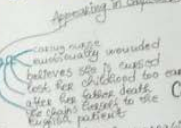 Appearing in
caring nurse
emotionally wounded
believes she is cursed
lost her childhood too
after her father death
she chains herself to the
English patient